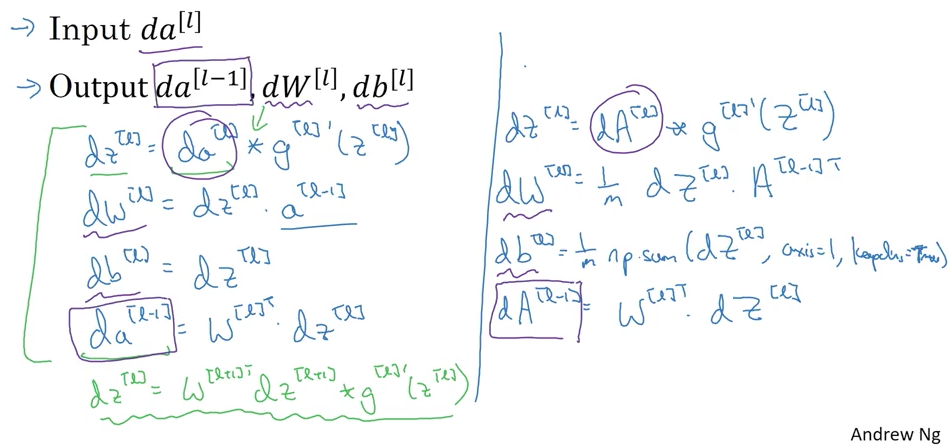 → Input da^[l]
→ Output da^[l-1], dW^[l], db^[l]
dz^[l] = da^[l] * g^[l]'(z^[l])
dW^[l] = dz^[l] · a^[l-1]
db^[l] = dz^[l]
da^[l-1] = W^[l]T · dz^[l]
dz^[l] = W^[l+1]T dz^[l+1] * g^[l]'(z^[l])
dZ^[l] = dA^[l] * g^[l]'(Z^[l])
dW^[l] = 1/m dZ^[l] · A^[l-1]T
db^[l] = 1/m np.sum(dZ^[l], axis=1, keepdims=True)
dA^[l-1] = W^[l]T · dZ^[l]
Andrew Ng